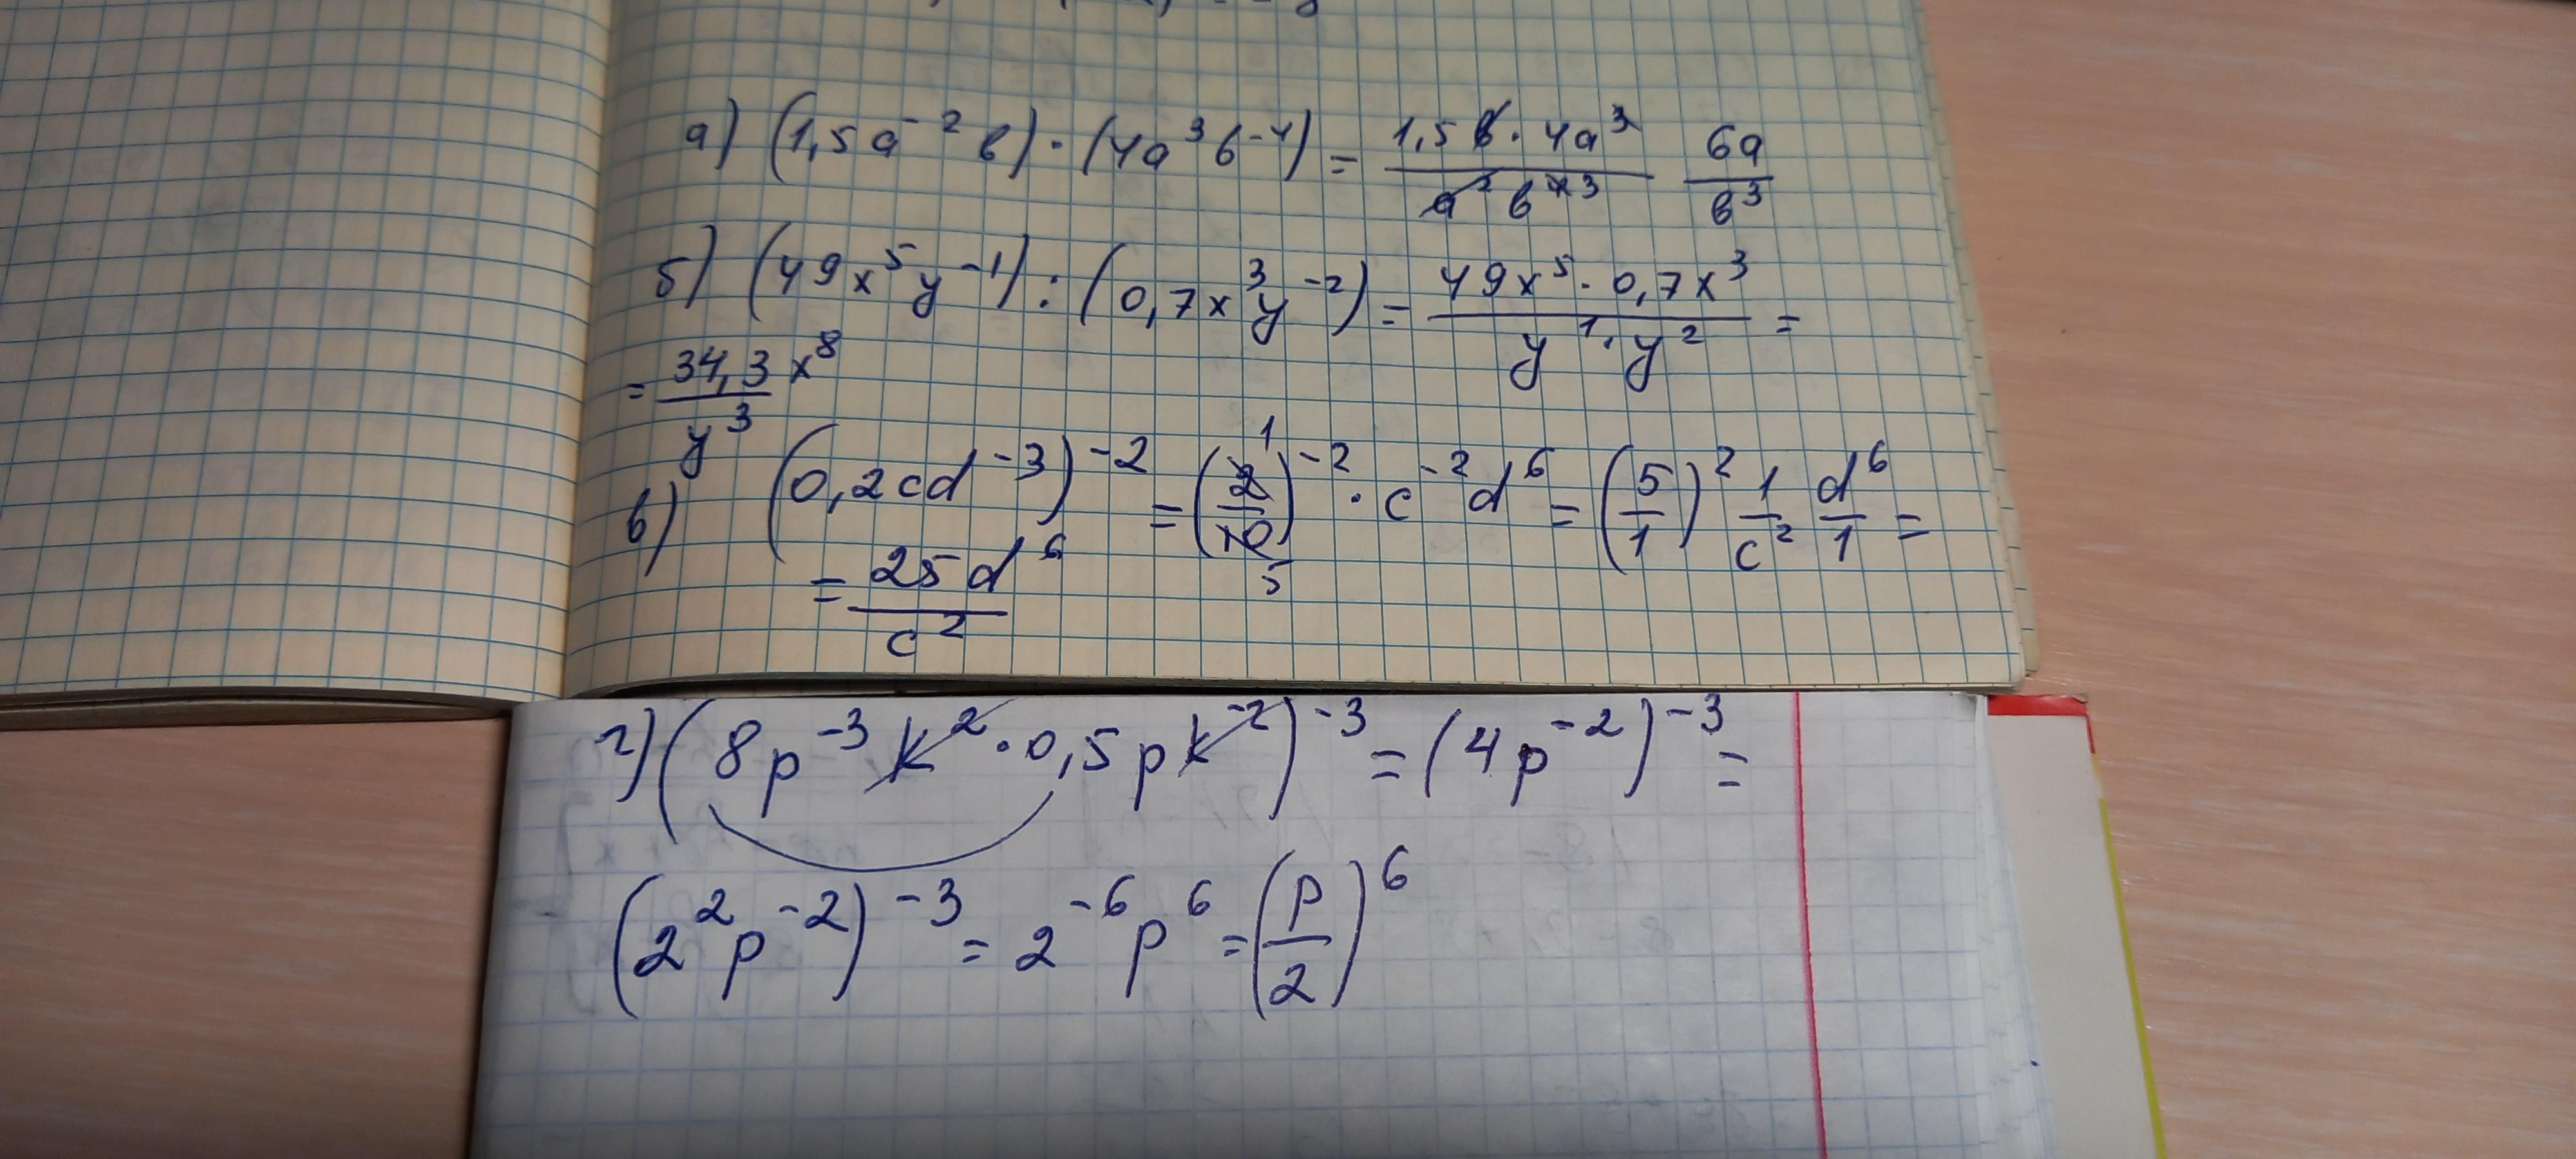 а) (1,5a⁻²b)·(4a³b⁻⁴) = (1,5b·4a³)/(a²b⁴ ³) 6a/b³
б) (49x⁵y⁻¹):(0,7x³y⁻²) = (49x⁵·0,7x³)/(y¹·y²) =
= 34,3x⁸/y³
в) (0,2cd⁻³)⁻² = (2/10)⁻²·c⁻²d⁶ = (5/1)² 1/c² d⁶/1 =
= 25d⁶/c²
г) (8p⁻³k²·0,5pk⁻²)⁻³ = (4p⁻²)⁻³ =
(2²p⁻²)⁻³ = 2⁻⁶p⁶ = (p/2)⁶